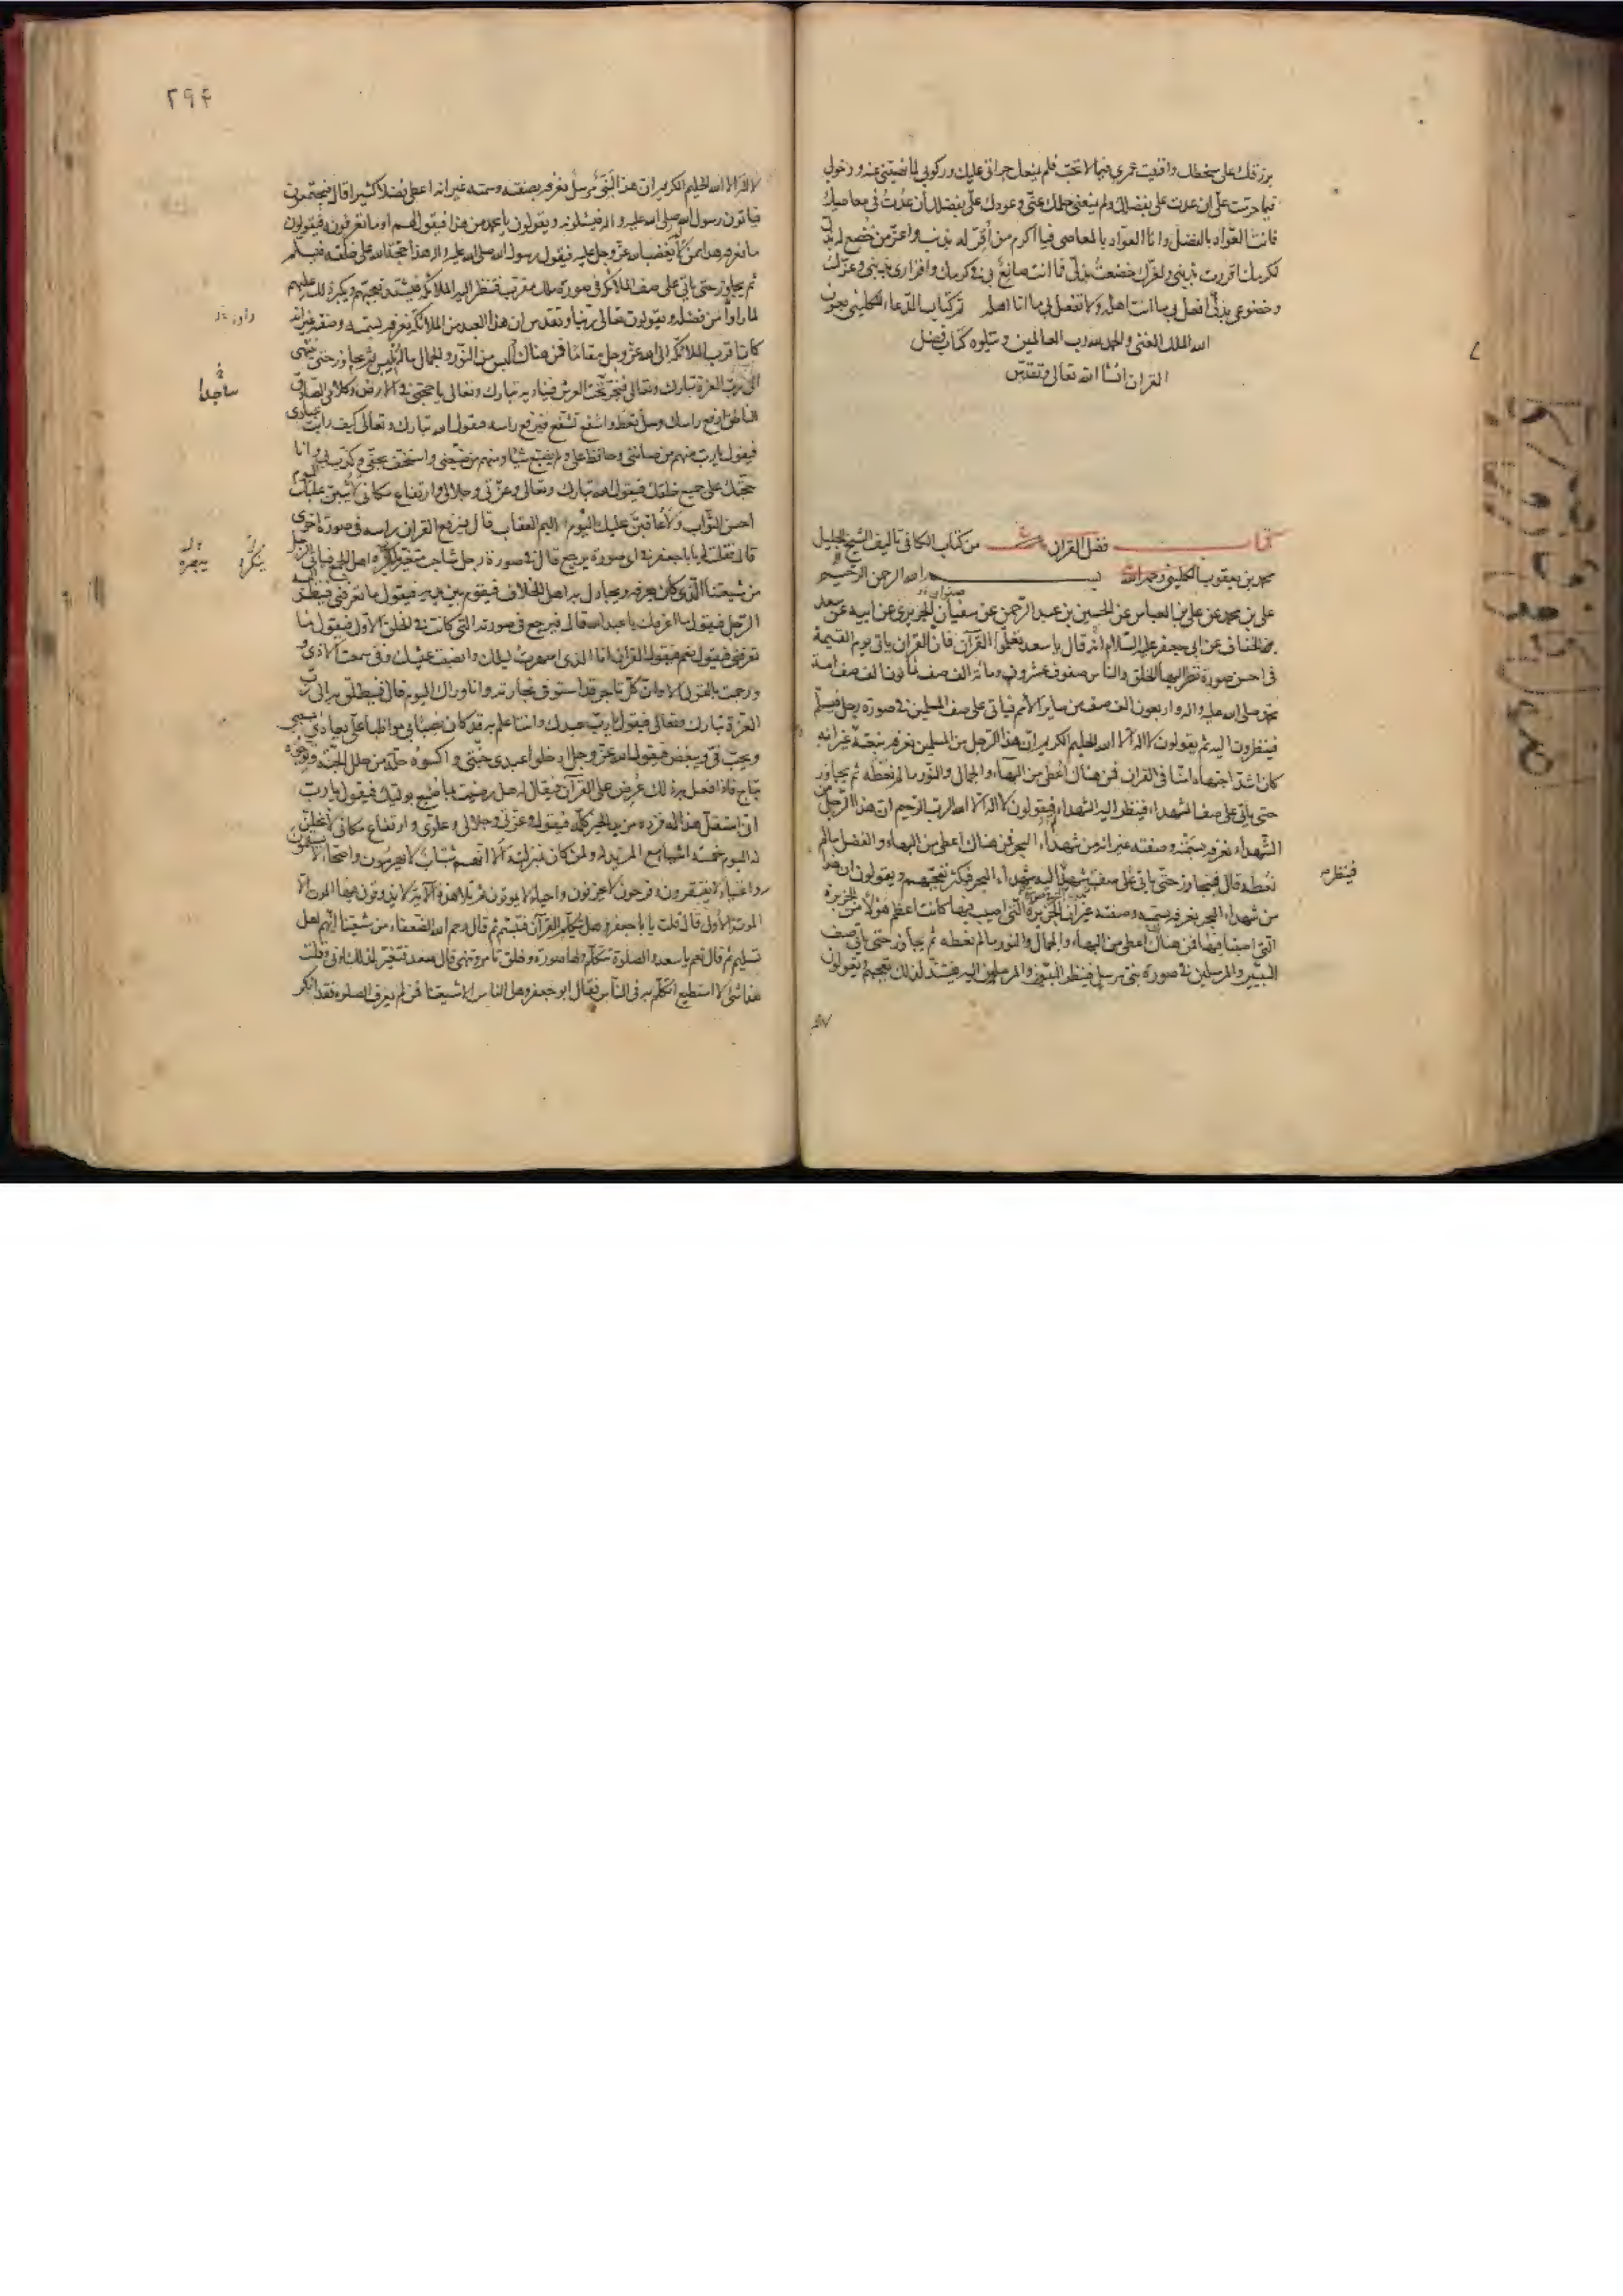 برزقك على سخطك وافنيت عمري فيما لا تحب فلم يمنعك جرأتي عليك وركوبي لما نهيتني عنه ودخولي
فيما حرمت علي ان عدت علي بفضلك ولم يمنعني حلمك عني وعودك علي بفضلك ان عدت في معاصيك
فانت العواد بالفضل وانا العواد بالمعاصي فيا اكرم من اقر له بذنب واعز من خضع له بذل
لكرمك اقررت بذنبي ولعزك خضعت بذلي فما انت صانع بي في كرمك واقراري بذنبي وعزك
وخضوعي بذلي افعل بي ما انت اهله ولا تفعل بي ما انا اهله تم كتاب الدعاء للكليني بعون
الله الملك الغني والحمد لله رب العالمين ويتلوه كتاب فضل
القران انشا الله تعالى وتقدس
كتاب فضل القران من كتاب الكافي تاليف الشيخ الجليل
محمد بن يعقوب الكليني رحمه الله بسم الله الرحمن الرحيم
علي بن محمد عن علي بن العباس عن الحسين بن عبد الرحمن عن سفيان الجريري عن ابيه عن سعد
الخفاف عن ابي جعفر عليه السلام انه قال يا سعد تعلموا القرآن فان القران ياتي يوم القيمة
في احسن صورة نظر اليها الخلق والناس صفوف عشرون ومائة الف صف ثمانون الف صف امة
محمد صلى الله عليه واله واربعون الف صف من ساير الامم فياتي على صف المسلمين في صورة رجل فيسلم
فينظرون اليه ثم يقولون لا اله الا الله الحليم الكريم ان هذا الرجل من المسلمين نعرفه بنعته غير انه
كان اشد اجتهادا منا في القران فمن هناك اعطي من البهاء والجمال والنور ما لم نعطه ثم يجاوز
حتى ياتي على صف الشهداء فينظر اليه الشهداء فيقولون لا اله الا الله الرب الرحيم ان هذا الرجل من
الشهداء نعرفه بسمته وصفته غير انه من شهداء البحر فمن هناك اعطي من البهاء والفضل ما لم
نعطه قال فيتجاوز حتى ياتي على صف شهداء البحر فيكثر تعجبهم ويقولون ان هذا
فينظر
من شهداء البحر نعرفه بسمته وصفته غير ان الجزيرة التي اصيب فيها كانت اعظم هولا من الجزيرة
التي اصبنا فيها فمن هناك اعطي من البهاء والجمال والنور ما لم نعطه ثم يجاوز حتى ياتي صف
النبيين والمرسلين في صورة نبي مرسل فينظر النبيون والمرسلون اليه فيشتد لذلك تعجبهم ويقولون
٢٩٤
لا اله الا الله الحليم الكريم ان هذا النبي مرسل نعرفه بصفته وسمته غير انه اعطي فضلا كثيرا قال فيجتمعون
فياتون رسول الله صلى الله عليه واله فيسئلونه ويقولون يا محمد من هذا فيقول لهم اوما تعرفونه فيقولون
ما نعرفه هذا ممن لم يغضب الله عز وجل عليه فيقول رسول الله صلى الله عليه واله هذا حجة الله على خلقه فيسلم
ثم يجاوز حتى ياتي على صف الملائكة في صورة ملك مقرب فتنظر اليه الملائكة فيشتد تعجبهم ويكبر ذلك عليهم
لما راوا من فضله ويقولون تعالى ربنا وتقدس ان هذا العبد من الملائكة نعرفه بسمته وصفته غير انه
كان اقرب الملائكة الى الله عز وجل مقاما فمن هناك البس من النور والجمال ما لم نلبس ثم يجاوز حتى ينتهي
الى رب العزة تبارك وتعالى فيخر تحت العرش فيناديه تبارك وتعالى يا حجتي في الارض وكلامي الصادق
ساجدا
الناطق ارفع راسك وسل تعط واشفع تشفع فيرفع راسه فيقول الله تبارك وتعالى كيف رايت عبادي
فيقول يا رب منهم من صانني وحافظ علي ولم يضيع شيئا ومنهم من ضيعني واستخف بحقي وكذب بي وانا
حجتك على جميع خلقك فيقول الله تبارك وتعالى وعزتي وجلالي وارتفاع مكاني لاثيبن عليك اليوم
احسن الثواب ولاعاقبن عليك اليوم اليم العقاب قال فيرفع القران راسه في صورة اخرى
قال فقلت له يا با جعفر في اي صورة يرجع قال في صورة رجل شاحب متغير اهل الجمع فياتي الرجل
ينكره
يبصره
من شيعتنا الذي كان يعرفه ويجادل به اهل الخلاف فيقوم بين يديه فيقول ما تعرفني فينظر اليه
الرجل فيقول ما اعرفك يا عبد الله قال فيرجع في صورته التي كانت في الخلق الاول فيقول ما
تعرفني فيقول نعم فيقول القران انا الذي اسهرت ليلك وانصبت عيشك وفي سمعت الاذى و
ورجمت بالقول في الا وان كل تاجر قد استوفى تجارته وانا وراك اليوم قال فينطلق به الى رب
العزة تبارك وتعالى فيقول يا رب عبدك وانت اعلم به قد كان نصبا بي مواظبا علي يعادي بسببي
ويحب في ويبغض فيقول الله عز وجل ادخلوا عبدي جنتي واكسوه حلة من حلل الجنة وتوجوه
بتاج فاذا فعل به ذلك عرض على القرآن فيقال له هل رضيت بما صنع بوليك فيقول يا رب
اني استقل هذا له فزده مزيد الخير كله فيقول وعزتي وجلالي وعلوي وارتفاع مكاني لانحلن
له اليوم خمسة اشياء مع المزيد له ولمن كان بمنزلته الا انهم شباب لا يهرمون واصحاء لا يسقمون
واغنياء لا يفتقرون وفرحون لا يحزنون واحياء لا يموتون ثم تلا هذه الآية لا يذوقون فيها الموت الا
الموتة الاولى قال قلت يا با جعفر وهل يتكلم القرآن فتبسم ثم قال رحم الله الضعفاء من شيعتنا انهم اهل
تسليم ثم قال نعم يا سعد والصلوة تتكلم ولها صورة وخلق تامر وتنهى قال سعد فتغير لذلك لوني وقلت
هذا شئ لا استطيع اتكلم به في الناس فقال ابو جعفر وهل الناس الا شيعتنا فمن لم يعرف الصلوة فقد انكر